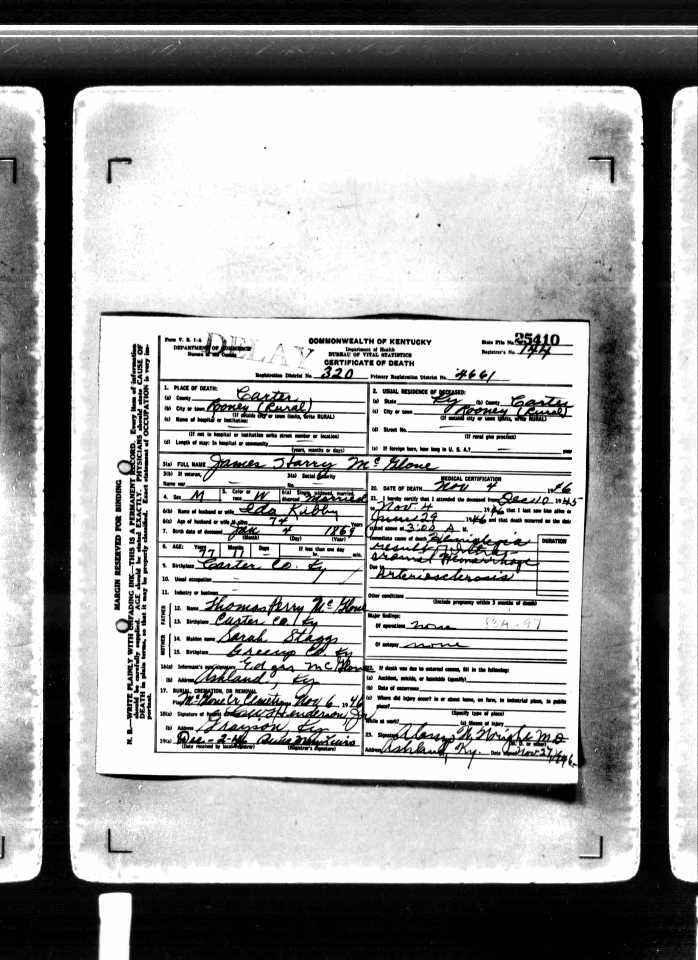 Form V. S. 1-A
DELAY
DEPARTMENT OF COMMERCE
COMMONWEALTH OF KENTUCKY
Department of Health
BUREAU OF VITAL STATISTICS
CERTIFICATE OF DEATH
State File No. 25410
Registrar's No. 144
Registration District No. 320 Primary Registration District No. 4661
MARGIN RESERVED FOR BINDING
N. B.—WRITE PLAINLY WITH UNFADING INK—THIS IS A PERMANENT RECORD. Every item of information should be carefully supplied. AGE should be stated EXACTLY. PHYSICIANS should state CAUSE OF DEATH in plain terms, so that it may be properly classified. Exact statement of OCCUPATION is very important.
1. PLACE OF DEATH:
(a) County Carter
(b) City or town Rooney (Rural)
(If outside city or town limits, write RURAL)
(c) Name of hospital or institution:
(If not in hospital or institution write street number or location)
(d) Length of stay: In hospital or community
(years, months or days)
2. USUAL RESIDENCE OF DECEASED:
(a) State Ky (b) County Carter
(c) City or town Rooney (Rural)
(If outside city or town limits, write RURAL)
(d) Street No.
(If rural give precinct)
(e) If foreign born, how long in U. S. A.? year
3(a) FULL NAME James Harry McGlone
3(b) If veteran,
Name war
3(c) Social Security
No.
4. Sex M
5. Color or race W
6(a) Single, widowed, married, divorced Married
6(b) Name of husband or wife Ida Kibby
6(c) Age of husband or wife if alive 74 Years
7. Birth date of deceased Jan 4 1869
(Month) (Day) (Year)
8. AGE: Years 77 Months Days
If less than one day
hr. min.
9. Birthplace Carter Co. Ky
10. Usual occupation
11. Industry or business
FATHER
12. Name Thomas Perry McGlone
13. Birthplace Carter Co. Ky
MOTHER
14. Maiden name Sarah Staggs
15. Birthplace Greenup Co. Ky
16(a) Informant's own signature Edgar McGlone
(b) Address Ashland, Ky
17. BURIAL, CREMATION, OR REMOVAL
Place McGlone Cemetery Nov 6 1946
18(a) Signature of Henderson
(b) Address Grayson Ky
19(a) Dec-2-46
(Date received by local registrar) (Registrar's signature)
MEDICAL CERTIFICATION
20. DATE OF DEATH Nov 4 1946
21. I hereby certify that I attended the deceased from Dec 10 1945
to Nov 4 1946 that I last saw him alive on
June 29 1946 and that death occurred on the date
stated above at 3:00 A M.
Immediate cause of death Hemiplegia
DURATION
result of
Hemorrhage
Due to
Arteriosclerosis
Other conditions
(Include pregnancy within 3 months of death)
Major findings:
Of operations none
83A-97
Of autopsy none
22. If death was due to external causes, fill in the following:
(a) Accident, suicide, or homicide (specify)
(b) Date of occurrence
(c) Where did injury occur? in or about home, on farm, in industrial place, in public
place?
(Specify type of place)
While at work? (e) Means of injury
23. Signature Wright M.D.
(M. D. or other)
Address Ashland, Ky. Date signed Nov 27, 1946